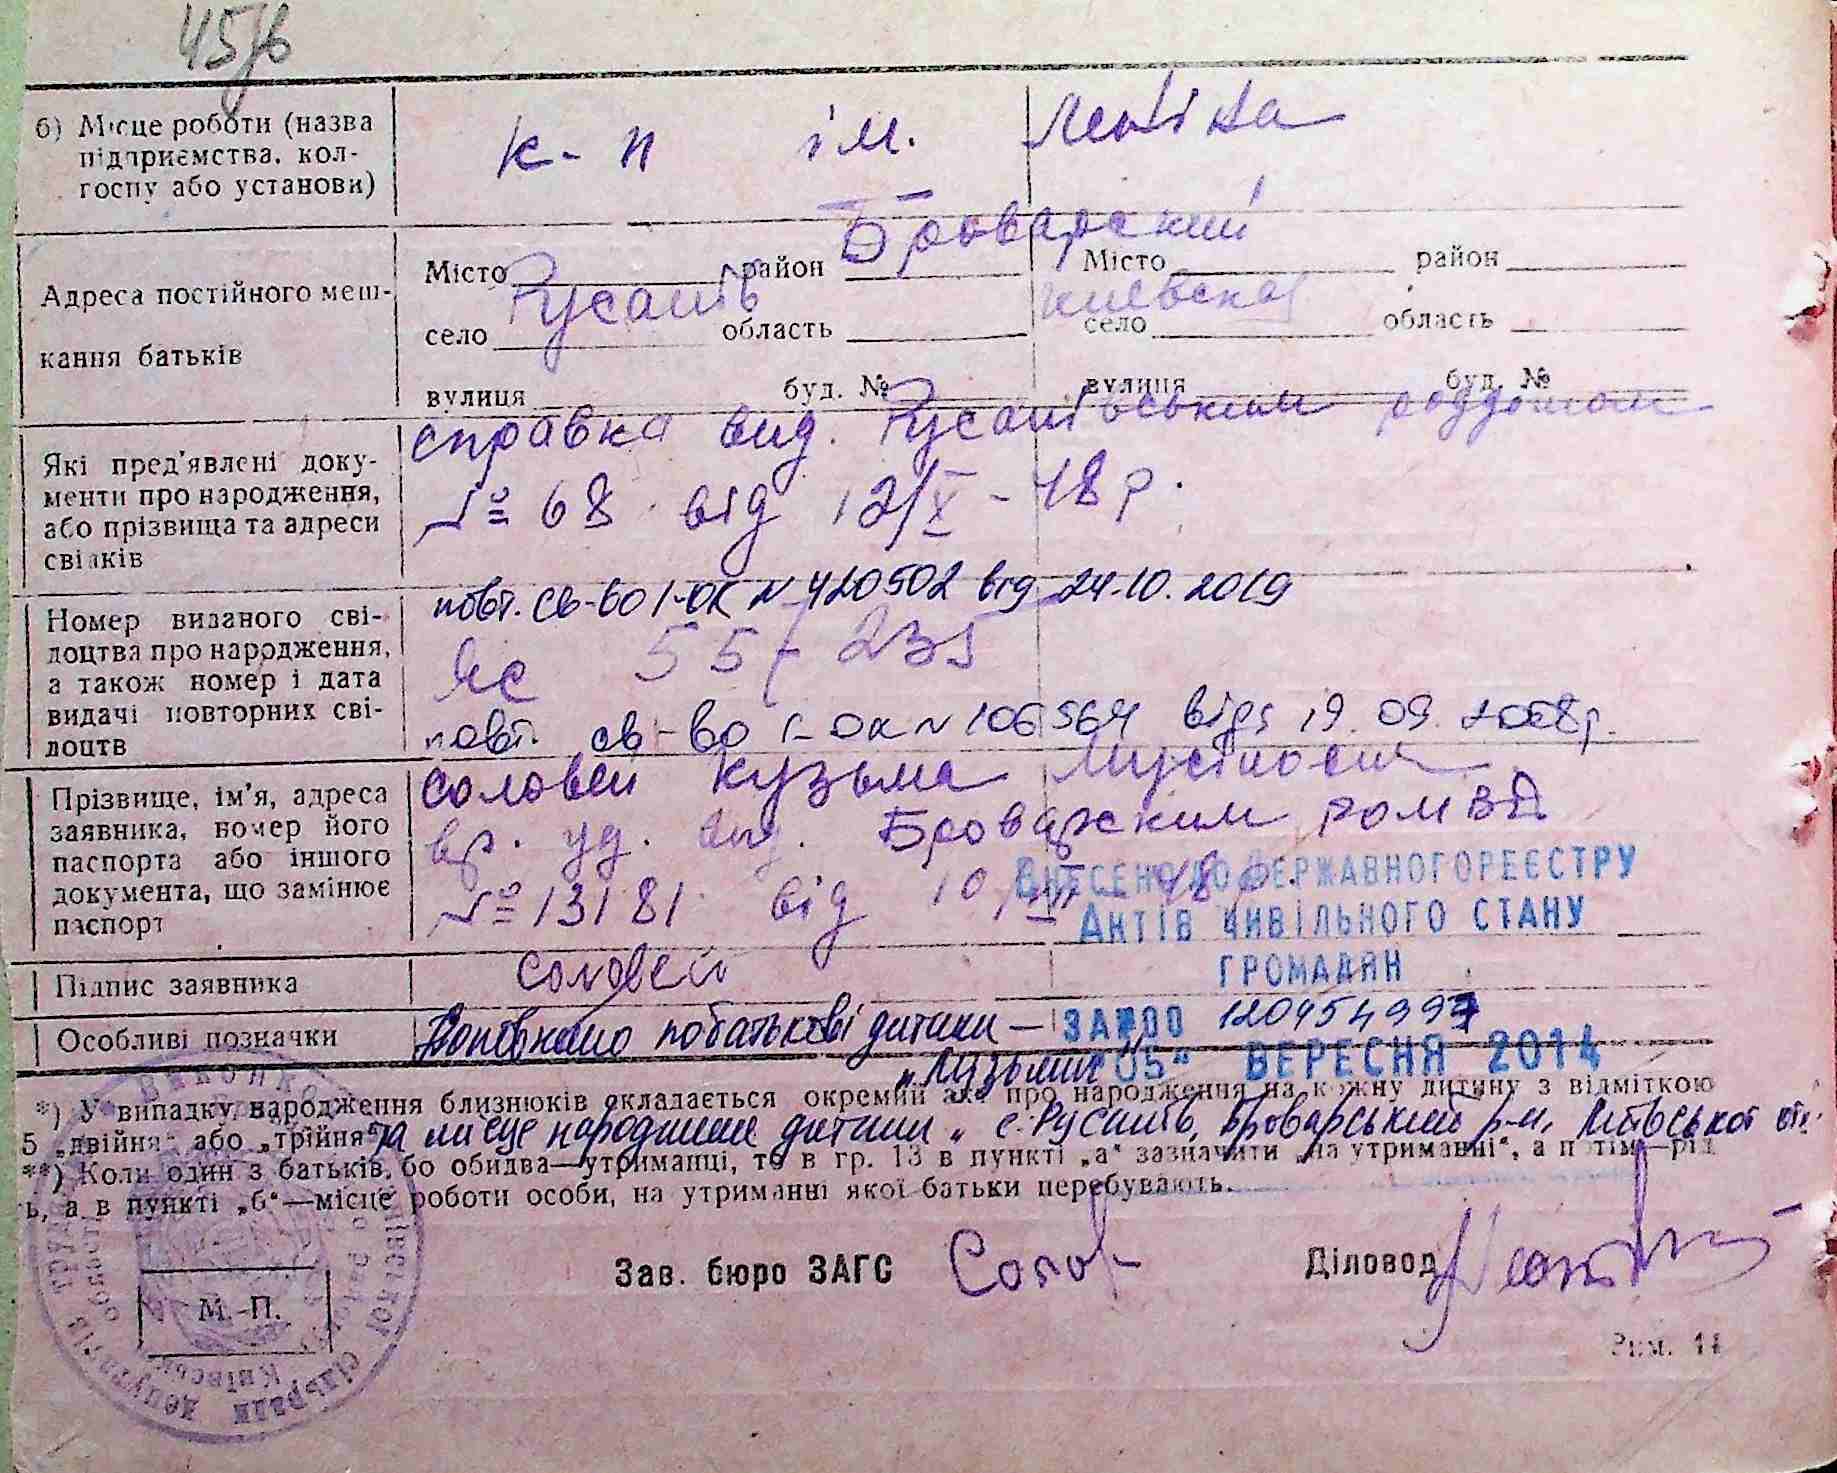 45/6
б) Місце роботи (назва
підприємства, кол-
госпу або установи)
к-п ім. Леніна
Адреса постійного меш-
кання батьків
Броварский
Місто район Місто район
Русанів Киевская
село область село область
вулиця буд. № вулиця буд. №
Які пред'явлені доку-
менти про народження,
або прізвища та адреси
свідків
справка вид. Русанівським роддомом
№ 68 від 12/X - 48 р.
Номер виданого сві-
доцтва про народження,
а також номер і дата
видачі повторних сві-
доцтв
повт. св-во І-ОК N 420502 від 24.10.2019
55-235
повт. св-во І-ОК N 106564 від 19.09.2008р.
Прізвище, ім'я, адреса
заявника, номер його
паспорта або іншого
документа, що замінює
паспорт
Соловей Кузьма
вр. уд. вид. Броварским РОМВД
№ 13181 від 10
ВНЕСЕНО ДО ДЕРЖАВНОГО РЕЄСТРУ
АКТІВ ЦИВІЛЬНОГО СТАНУ
ГРОМАДЯН
Підпис заявника
Соловей
Особливі позначки
Доповнено по батькові дитини —
ЗА №00 120454997
"05" ВЕРЕСНЯ 2014
*) У випадку народження близнюків складається окремий акт про народження на кожну дитину з відміткою
5 „двійня" або „трійня"
та місце народження дитини „с. Русанів, Броварський р-н, Київської обл.
**) Коли один з батьків, бо обидва—утриманці, то в гр. 13 в пункті „а" зазначити „на утриманні", а потім—рід
ь, а в пункті „б"—місце роботи особи, на утриманні якої батьки перебувають.
Зав. бюро ЗАГС Діловод
М.-П.